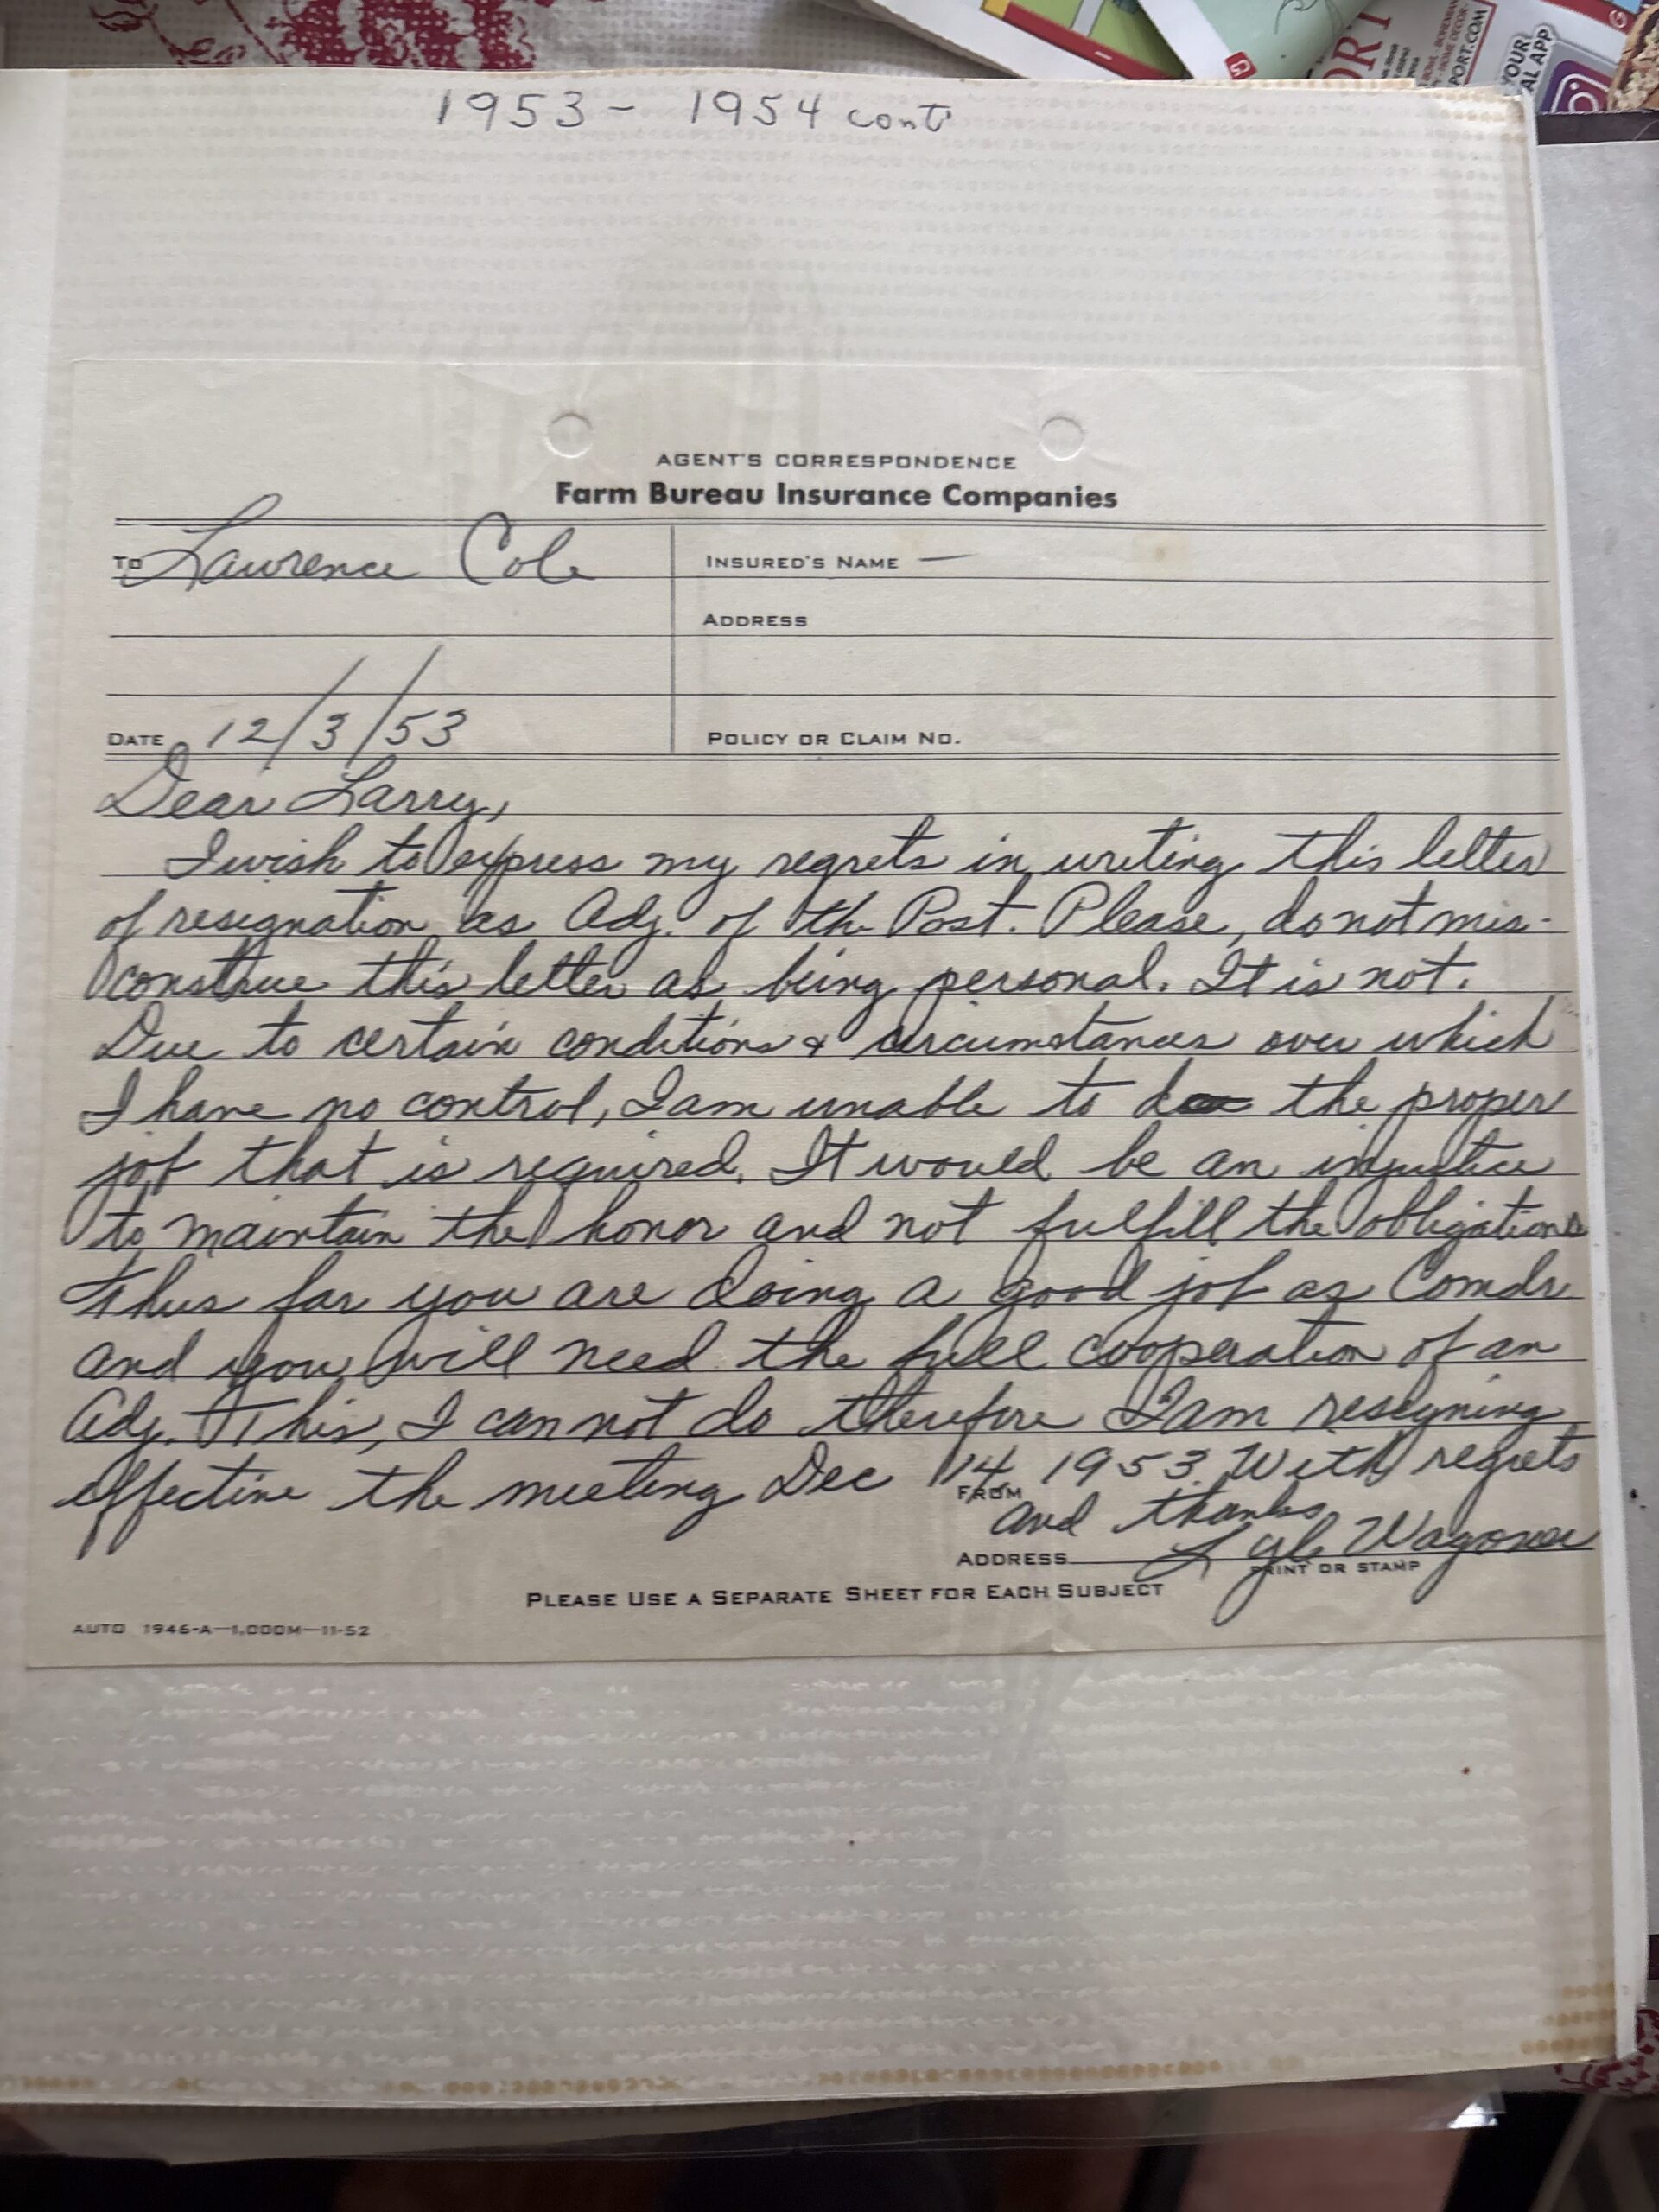 PORT.COM
YOUR
AL APP
1953 - 1954 cont
AGENT'S CORRESPONDENCE
Farm Bureau Insurance Companies
TO Lawrence Cole
INSURED'S NAME —
ADDRESS
DATE 12/3/53
POLICY OR CLAIM NO.
Dear Larry,
I wish to express my regrets in writing this letter
of resignation as Adj. of the Post. Please, do not mis-
construe this letter as being personal. It is not.
Due to certain conditions & circumstances over which
I have no control, I am unable to do the proper
job that is required. It would be an injustice
to maintain the honor and not fulfill the obligations
Thus far you are doing a good job as Comdr
and you will need the full cooperation of an
Adj. This, I can not do therefore I am resigning
effective the meeting Dec 14, 1953. With regrets
FROM
and thanks
ADDRESS Lyle Wagoner
PRINT OR STAMP
PLEASE USE A SEPARATE SHEET FOR EACH SUBJECT
AUTO 1946-A—1,000M—11-52